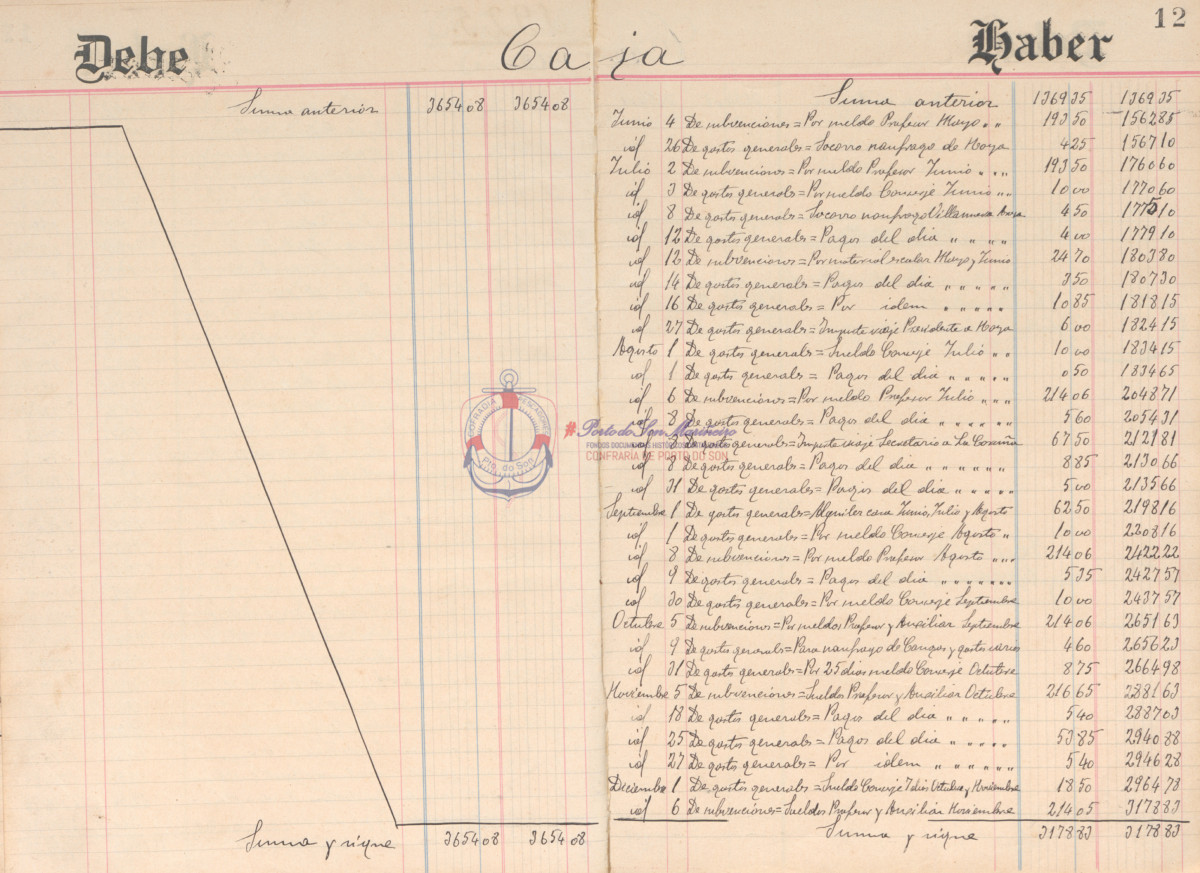 12
Debe Caja Haber
Suma anterior 3654 08 3654 08
Suma anterior 1369 35 1369 35
Junio 4 De subvenciones = Por sueldo Profesor Mayo " " 193 50 1562 85
id 26 De gastos generales = Socorro naufrago de Noya 4 25 1567 10
Julio 2 De subvenciones = Por sueldo Profesor Junio " " " 193 50 1760 60
id 3 De gastos generales = Por sueldo Conserje Junio " " 10 00 1770 60
id 8 De gastos generales = Socorro naufrago Villanueva Arosa 4 50 1775 10
id 12 De gastos generales = Pagos del dia " " " " 4 00 1779 10
id 12 De subvenciones = Por material escolar Mayo y Junio 24 70 1803 80
id 14 De gastos generales = Pagos del dia " " " " " 3 50 1807 30
id 16 De gastos generales = Por idem " " " " " 10 85 1818 15
id 27 De gastos generales = Importe viaje Presidente a Noya 6 00 1824 15
Agosto 1 De gastos generales = Sueldo Conserje Julio " " 10 00 1834 15
id 1 De gastos generales = Pagos del dia " " " " " 0 50 1834 65
id 6 De subvenciones = Por sueldo Profesor Julio " " " 214 06 2048 71
id 8 De gastos generales = Pagos del dia " " " " " 5 60 2054 31
id 8 De gastos generales = Importe viaje Secretario a La Coruña 67 50 2121 81
id 8 De gastos generales = Pagos del dia " " " " " " " 8 85 2130 66
id 31 De gastos generales = Pagos del dia " " " " " 5 00 2135 66
Septiembre 1 De gastos generales = Alquiler casa Junio, Julio y Agosto 62 50 2198 16
id 1 De gastos generales = Por sueldo Conserje Agosto " 10 00 2208 16
id 8 De subvenciones = Por sueldo Profesor Agosto " " " 214 06 2422 22
id 9 De gastos generales = Pagos del dia " " " " " " " 5 35 2427 57
id 30 De gastos generales = Por sueldo Conserje Septiembre 10 00 2437 57
Octubre 5 De subvenciones = Por sueldos Profesor y Auxiliar Septiembre 214 06 2651 63
id 9 De gastos generales = Para naufrago de Cangas y gastos varios 4 60 2656 23
id 31 De gastos generales = Por 25 dias sueldo Conserje Octubre 8 75 2664 98
Noviembre 5 De subvenciones = Sueldos Profesor y Auxiliar Octubre 216 65 2881 63
id 18 De gastos generales = Pagos del dia " " " " " 5 40 2887 03
id 25 De gastos generales = Pagos del dia " " " " " 53 85 2940 88
id 27 De gastos generales = Por idem " " " " " " 5 40 2946 28
Diciembre 1 De gastos generales = Sueldo Conserje 7 dias Octubre y Noviembre 18 50 2964 78
id 6 De subvenciones = Sueldos Profesor y Auxiliar Noviembre 214 05 3178 83
Suma y sigue 3654 08 3654 08
Suma y sigue 3178 83 3178 83
COFRADIA PESCADORES
Pto. do Son
#Porto do Son Marineiro
FONDOS DOCUMENTAIS HISTÓRICOS
CONFRARIA DE PORTO DO SON